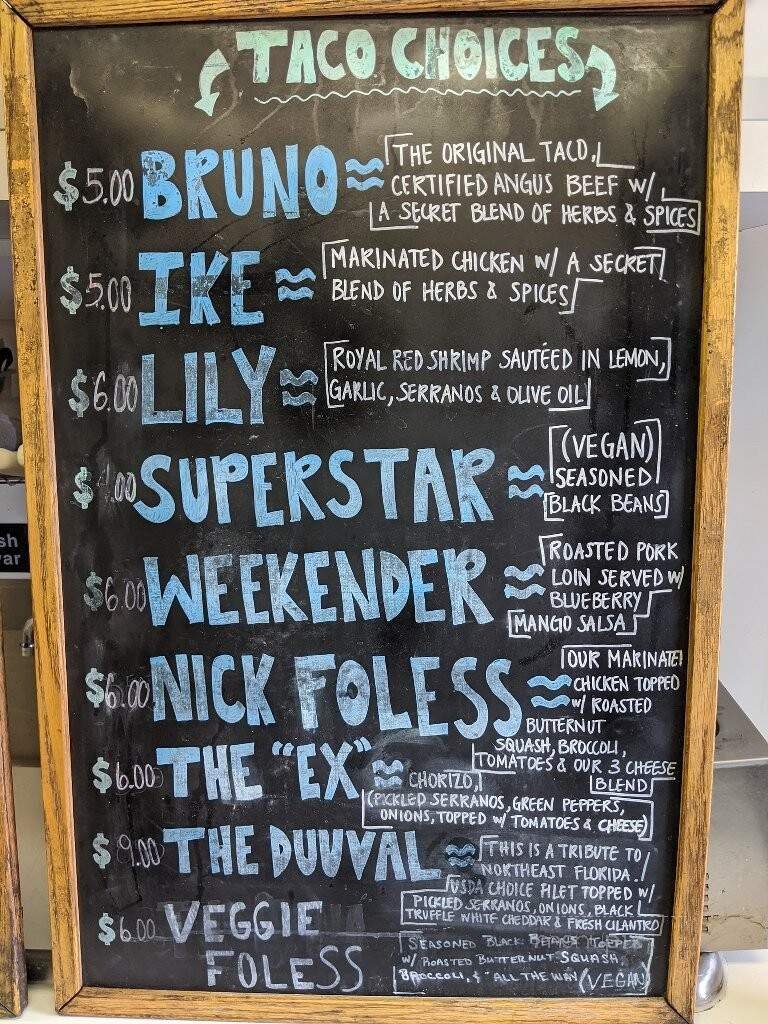 TACO CHOICES
$5.00 BRUNO THE ORIGINAL TACO,
CERTIFIED ANGUS BEEF W/
A SECRET BLEND OF HERBS & SPICES
$5.00 IKE MARINATED CHICKEN W/ A SECRET
BLEND OF HERBS & SPICES
$6.00 LILY ROYAL RED SHRIMP SAUTÉED IN LEMON,
GARLIC, SERRANOS & OLIVE OIL
$ .00 SUPERSTAR (VEGAN)
SEASONED
BLACK BEANS
$6.00 WEEKENDER ROASTED PORK
LOIN SERVED W/
BLUEBERRY
MANGO SALSA
$6.00 NICK FOLESS OUR MARINATE
CHICKEN TOPPED
W/ ROASTED
BUTTERNUT
SQUASH, BROCCOLI,
TOMATOES & OUR 3 CHEESE
BLEND
$6.00 THE "EX" CHORIZO,
(PICKLED SERRANOS, GREEN PEPPERS,
ONIONS, TOPPED W/ TOMATOES & CHEESE)
$9.00 THE DUUVAL THIS IS A TRIBUTE TO
NORTHEAST FLORIDA.
USDA CHOICE FILET TOPPED W/
PICKLED SERRANOS, ONIONS, BLACK
TRUFFLE WHITE CHEDDAR & FRESH CILANTRO
$6.00 VEGGIE
FOLESS
SEASONED BLACK BEANS TOPPED
W/ ROASTED BUTTERNUT SQUASH,
BROCCOLI, & "ALL THE WAY (VEGAN)